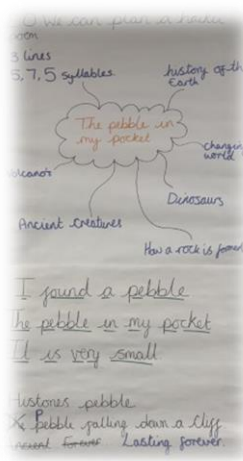 We can plan a haiku
3 lines
5, 7, 5 syllables
history of the
Earth
The pebble in
my pocket
changing
world
volcano's
Dinosaurs
Ancient Creatures
How a rock is formed
I found a pebble
The pebble in my pocket
It is very small
Histones pebble
A Pebble falling down a Cliff
Ancient Forever Lasting forever.